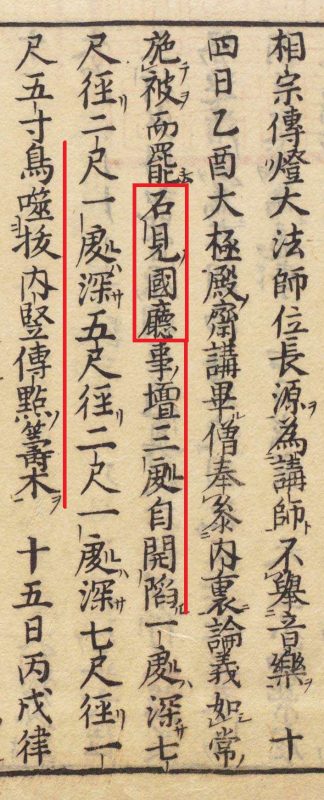 相宗傳燈大法師位長源為講師不擧音樂十
四日乙酉大極殿齋講畢僧奉參內裏論義如常
施被而罷石見國廳事壇三處自開陷一處深七
尺徑二尺一處深五尺徑二尺一處深七尺徑一
尺五寸鳥噬拔內竪傳點籌木十五日丙戌律